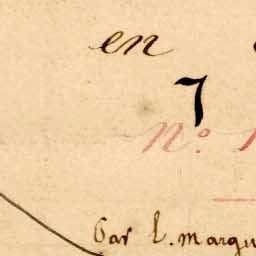 en
7
No. 1
Par L. Marqu